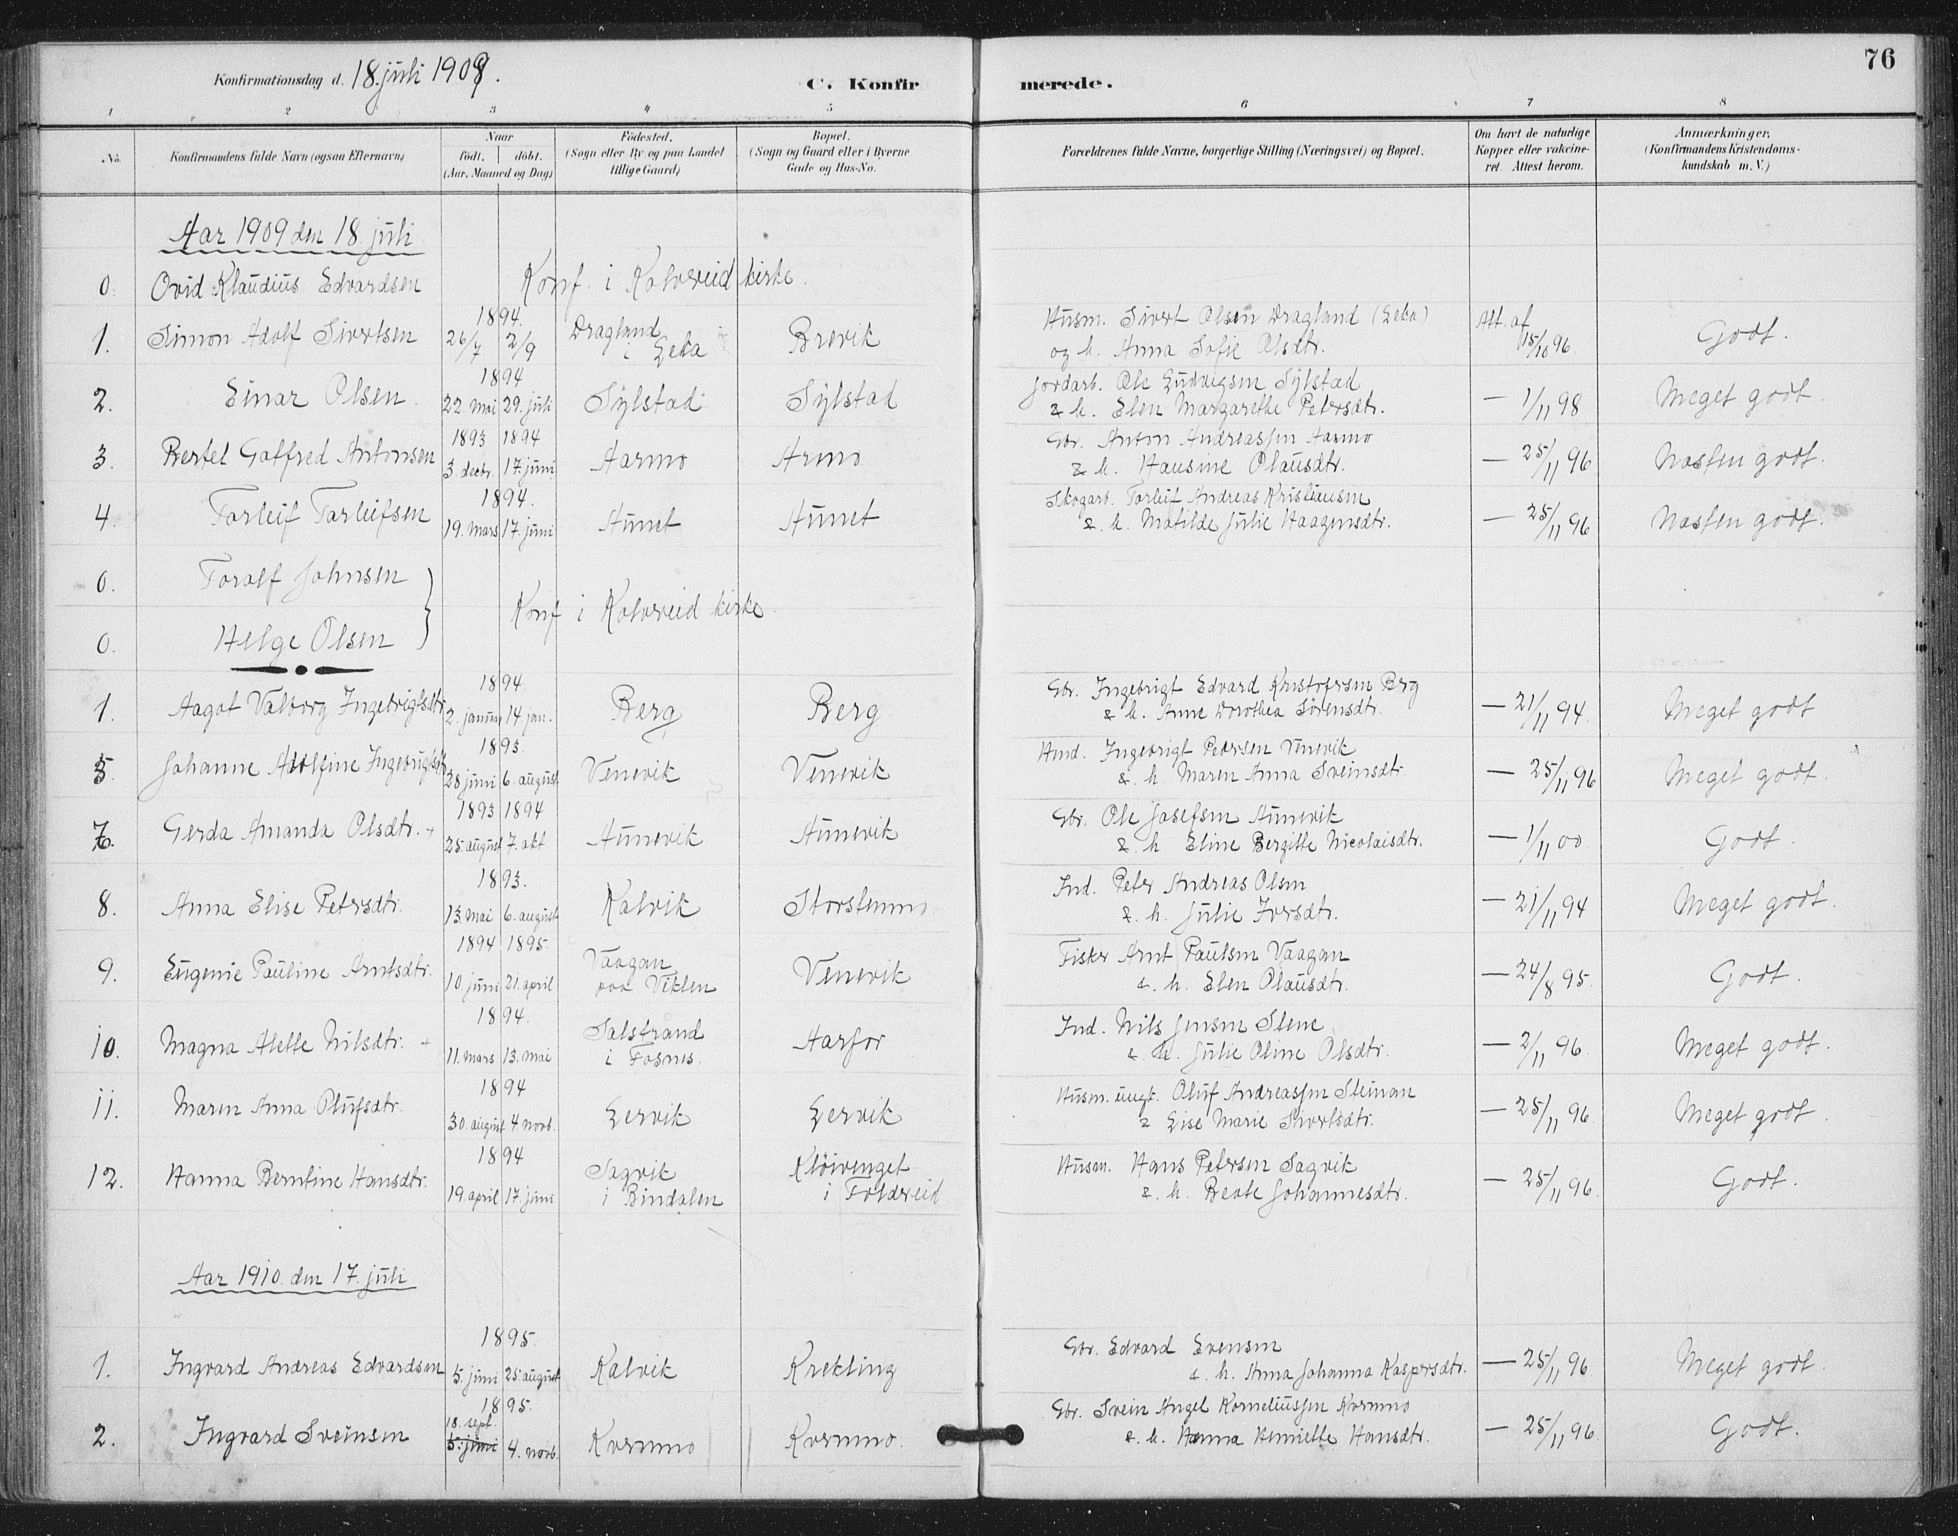 76
Konfirmationsdag d. 18. juli 1909.
C. Konfirmerede.
1 2 3 4 5 6 7 8
No.
Konfirmandens fulde Navn (ogsaa Efternavn)
Naar
født. døbt.
(Aar, Maaned og Dag)
Fødested.
(Sogn eller By og paa Landet
tillige Gaard)
Bopæl.
(Sogn og Gaard eller i Byerne
Gade og Hus-No.
Forældrenes fulde Navne, borgerlige Stilling (Næringsvei) og Bopæl.
Om havt de naturlige
Kopper eller vakcine-
ret. Attest herom.
Anmærkninger,
(Konfirmandens Kristendoms-
kundskab m. V.)
Aar 1909 den 18 juli
0. Ovid Klaudius Edvardsen Konf. i Kolvereid kirke.
1894.
1. Simon Adolf Sivertsen 26/7 2/9 Dragland i Leka Brevik Husm. Sivert Olsen Dragland (Leka) Att. af 15/10 96. Godt.
og h. Anna Sofie Olsdtr.
1894
2. Einar Olsen 22. mai 29. juli Sylstad Sylstad Jordarb. Ole Ludvigsen Sylstad — 1/11 98 Meget godt.
& h. Elen Margarethe Petersdtr.
1893 1894
3. Bertel Gotfred Antonsen 3 decbr. 17. juni Aarmo Armo Gbr. Anton Andreassen Aarmo — 25/11 96 Næsten godt.
& h. Hansine Olausdtr.
1894.
4. Torleif Torleifsen 19. mars 17. juni Aunet Aunet Skogarb. Torleif Andreas Kristiansen — 25/11 96 Næsten godt.
& h. Matilde Julie Haagensdtr.
0. Toralf Johnsen
Konf i Kolvereid kirke.
0. Helge Olsen
1894.
1. Aagot Valborg Ingebrigtsdtr. 2. januar 14. jan. Berg Berg Gbr. Ingebrigt Edvard Kristofersen Berg — 21/11 94 Meget godt
& h. Anne Dorothea Sørensdtr.
1893.
5. Johanne Adolfine Ingebrigtsdtr 28 juni 6. august Venevik Venevik Ind. Ingebrigt Petersen Venevik — 25/11 96 Meget godt.
& h. Maren Anna Sveinsdtr.
1893 1894
7. Gerda Amanda Olsdtr. + 25. august 7. okt Aunevik Aunevik Gbr. Ole Josefsen Aunevik — 1/11 00. Godt.
& h Eline Bergitte Nicolaisdtr.
1893.
8. Anna Elise Petersdtr. 13. mai 6. august Kalvik Ind. Peter Andreas Olsen — 21/11 94 Meget godt.
& h. Julie Iversdtr.
1894 1895.
9. Eugenie Pauline Arntsdtr. 10. juni 21. april Vaagan paa Vikten Venevik Fisker Arnt Paulsen Vaagan — 24/8 95. Godt.
& h. Elen Olausdtr.
1894.
10. Magna Alette Nilsdtr. + 11. mars 13. mai Salstrand i Fosnes. Aarfor Ind. Nils Jensen Slene — 2/11 96. Meget godt.
& h. Julie Oline Olsdtr.
1894
11. Maren Anna Olufsdtr. 30. august 4. novb. Lervik Lervik Husm. ungk. Oluf Andreassen Steinan — 25/11 96. Meget godt.
& Lise Marie Sivertsdtr.
1894
12. Hanna Berntine Hansdtr. 19. april 17. juni Sagvik i Bindalen Kløivenget i Foldreid Husm. Hans Petersen Sagvik — 25/11 96. Godt.
& h. Beate Johannesdtr.
Aar 1910. den 17. juli
1895.
1. Ingvard Andreas Edvardsen 5. juni 25. august Kalvik Krekling Gbr. Edvard Evensen — 25/11 96 Meget godt.
& h. Anna Johanna Kaspersdtr.
1895.
2. Ingvard Sveinsen 18. sept. 5. juni 4. novb. Kvernmo Kvernmo. Gbr. Svein Angel Korneliussen Kvernmo — 25/11 96. Godt.
& h. Hanna Henriette Hansdtr.